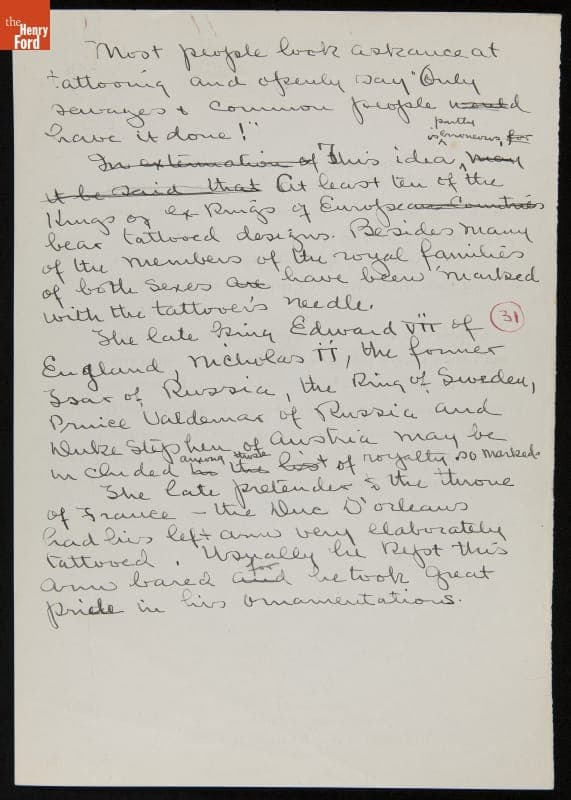 the
Henry
Ford
Most people look askance at
tattooing and openly say "Only
sewages & common people would
have it done!"
partly
is erroneous, for
In extenuation of This idea, may
it be said that At least ten of the
Kings or ex Kings of European Countries
bear tattooed designs. Besides many
of the members of the royal families
of both sexes are have been marked
with the tattooer's needle.
31
The late King Edward VII of
England, Nicholas II, the former
Tsar of Russia, the King of Sweden,
Prince Valdemar of Russia and
Duke Stephen of Austria may be
among those
included in the list of royalty so marked.
The late pretender to the throne
of France - the Duc D'orleans
had his left arm very elaborately
tattooed. Usually he kept this
for
arm bared and he took great
pride in his ornamentations.